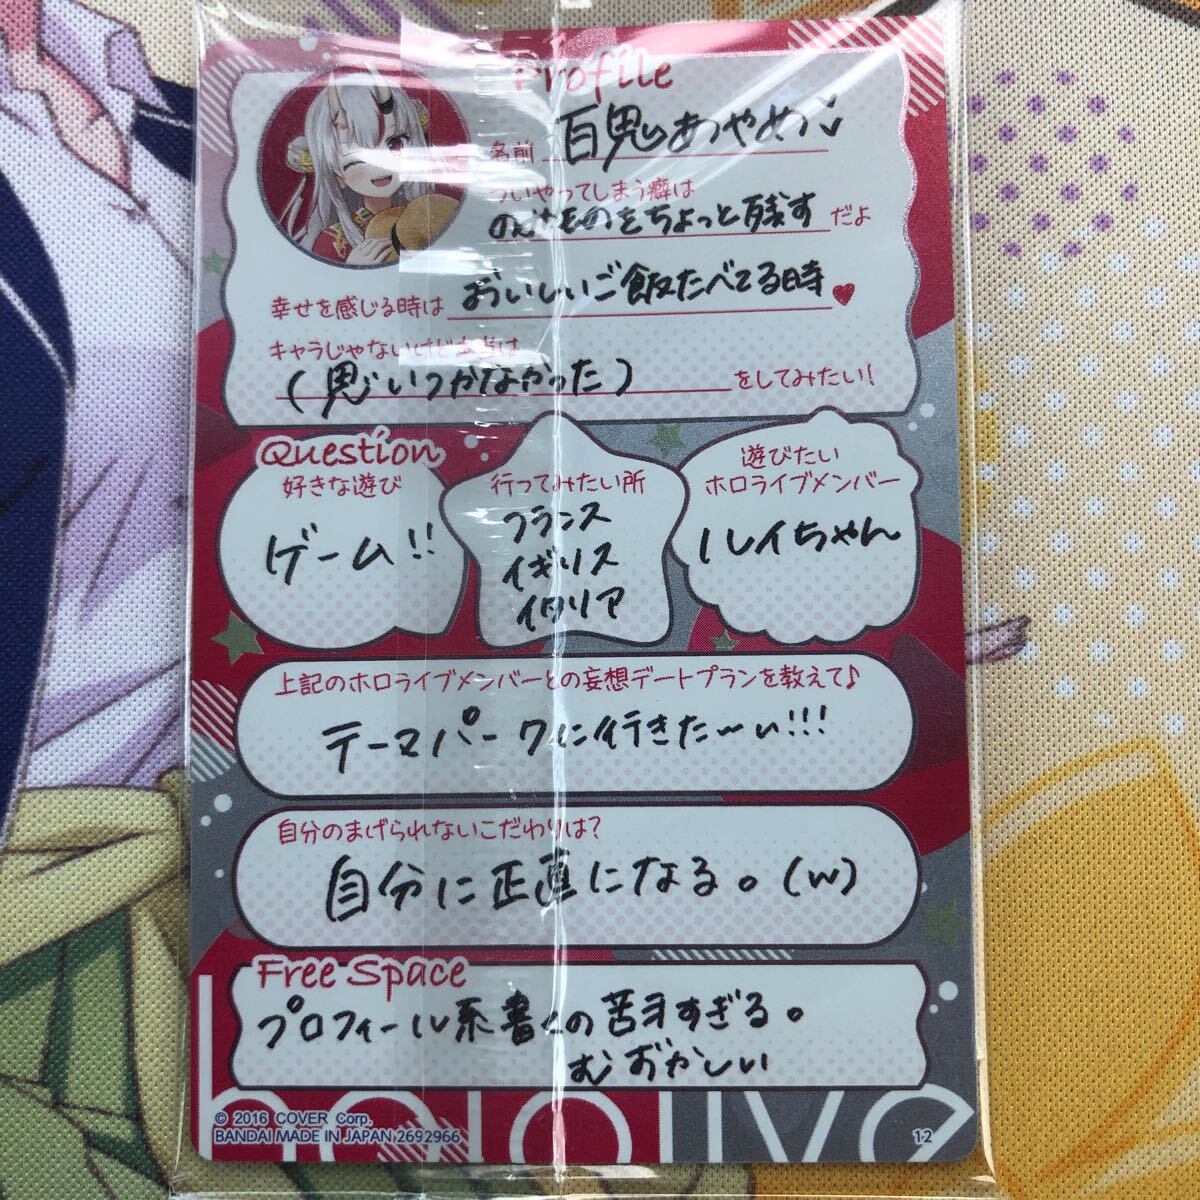 Profile
名前 百鬼あやめ♡
ついやってしまう癖は
のみものをちょっと残す だよ
幸せを感じる時は おいしいご飯たべてる時♥
キャラじゃないけど本当は
(思いつかなかった) をしてみたい!
Question
好きな遊び
ゲーム!!
行ってみたい所
フランス
イギリス
イタリア
遊びたい
ホロライブメンバー
ルイちゃん
上記のホロライブメンバーとの妄想デートプランを教えて♪
テーマパークに行きた〜い!!!
自分のまげられないこだわりは?
自分に正直になる。(w)
Free Space
プロフィール系書くの苦手すぎる。
むずかしい
hololive
© 2016 COVER Corp.
BANDAI MADE IN JAPAN 2692966
12